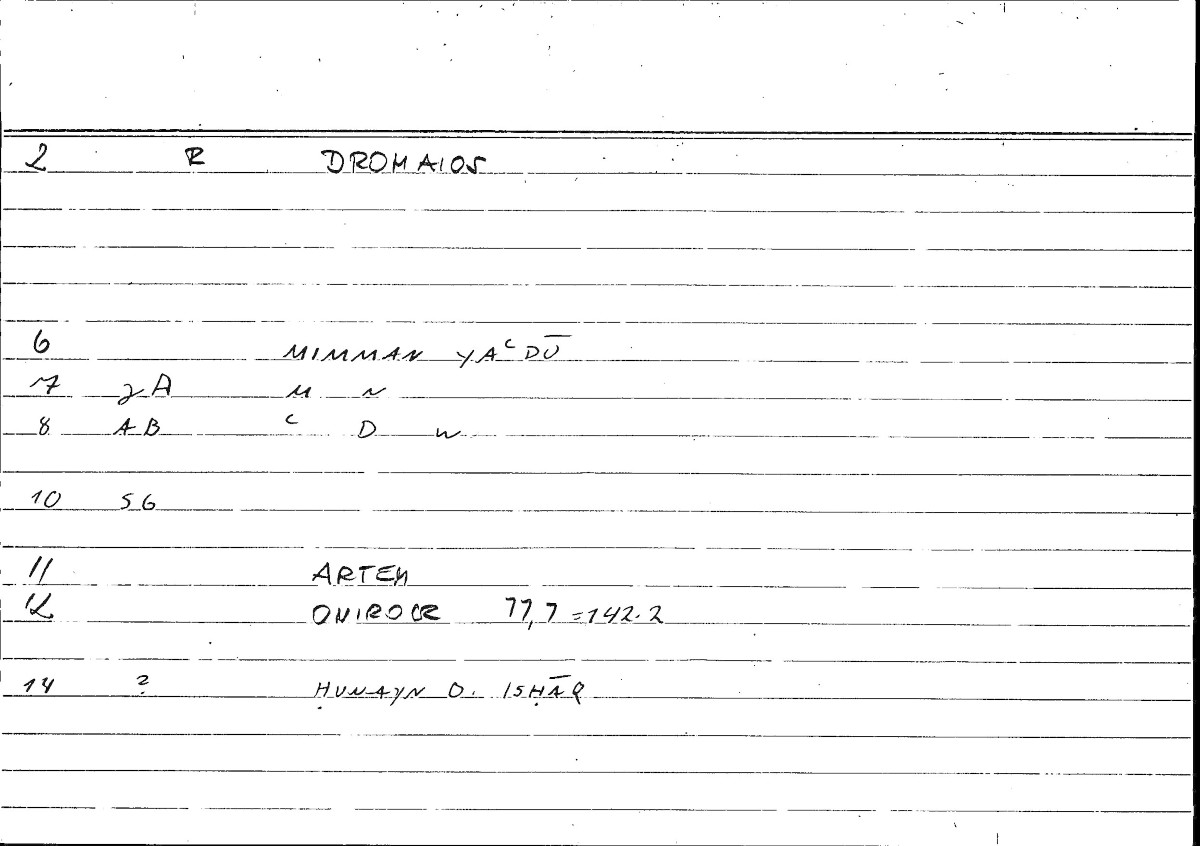 2 R DROMAIOS
6 MIMMAN YAᶜDŪ
7 γA M N
8 AB ᶜ D W
10 SG
11 ARTEM
12 ONIROCR 77,7 = 142.2
14 ? ḤUNAYN B. ISḤĀQ